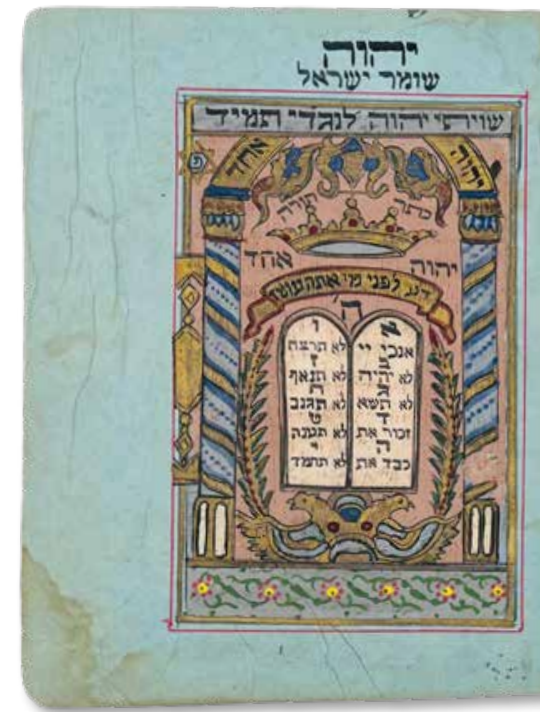 יהוה
שומר ישראל
שויתי יהוה לנגדי תמיד
יהוה אחד
כתר תורה
יהוה אחד
דע לפני מי אתה עומד
ה'
א
אנכי יי
ב
לא יהיה
ג
לא תשא
ד
זכור את
ה
כבד את
ו
לא תרצח
ז
לא תנאף
ח
לא תגנב
ט
לא תענה
י
לא תחמד